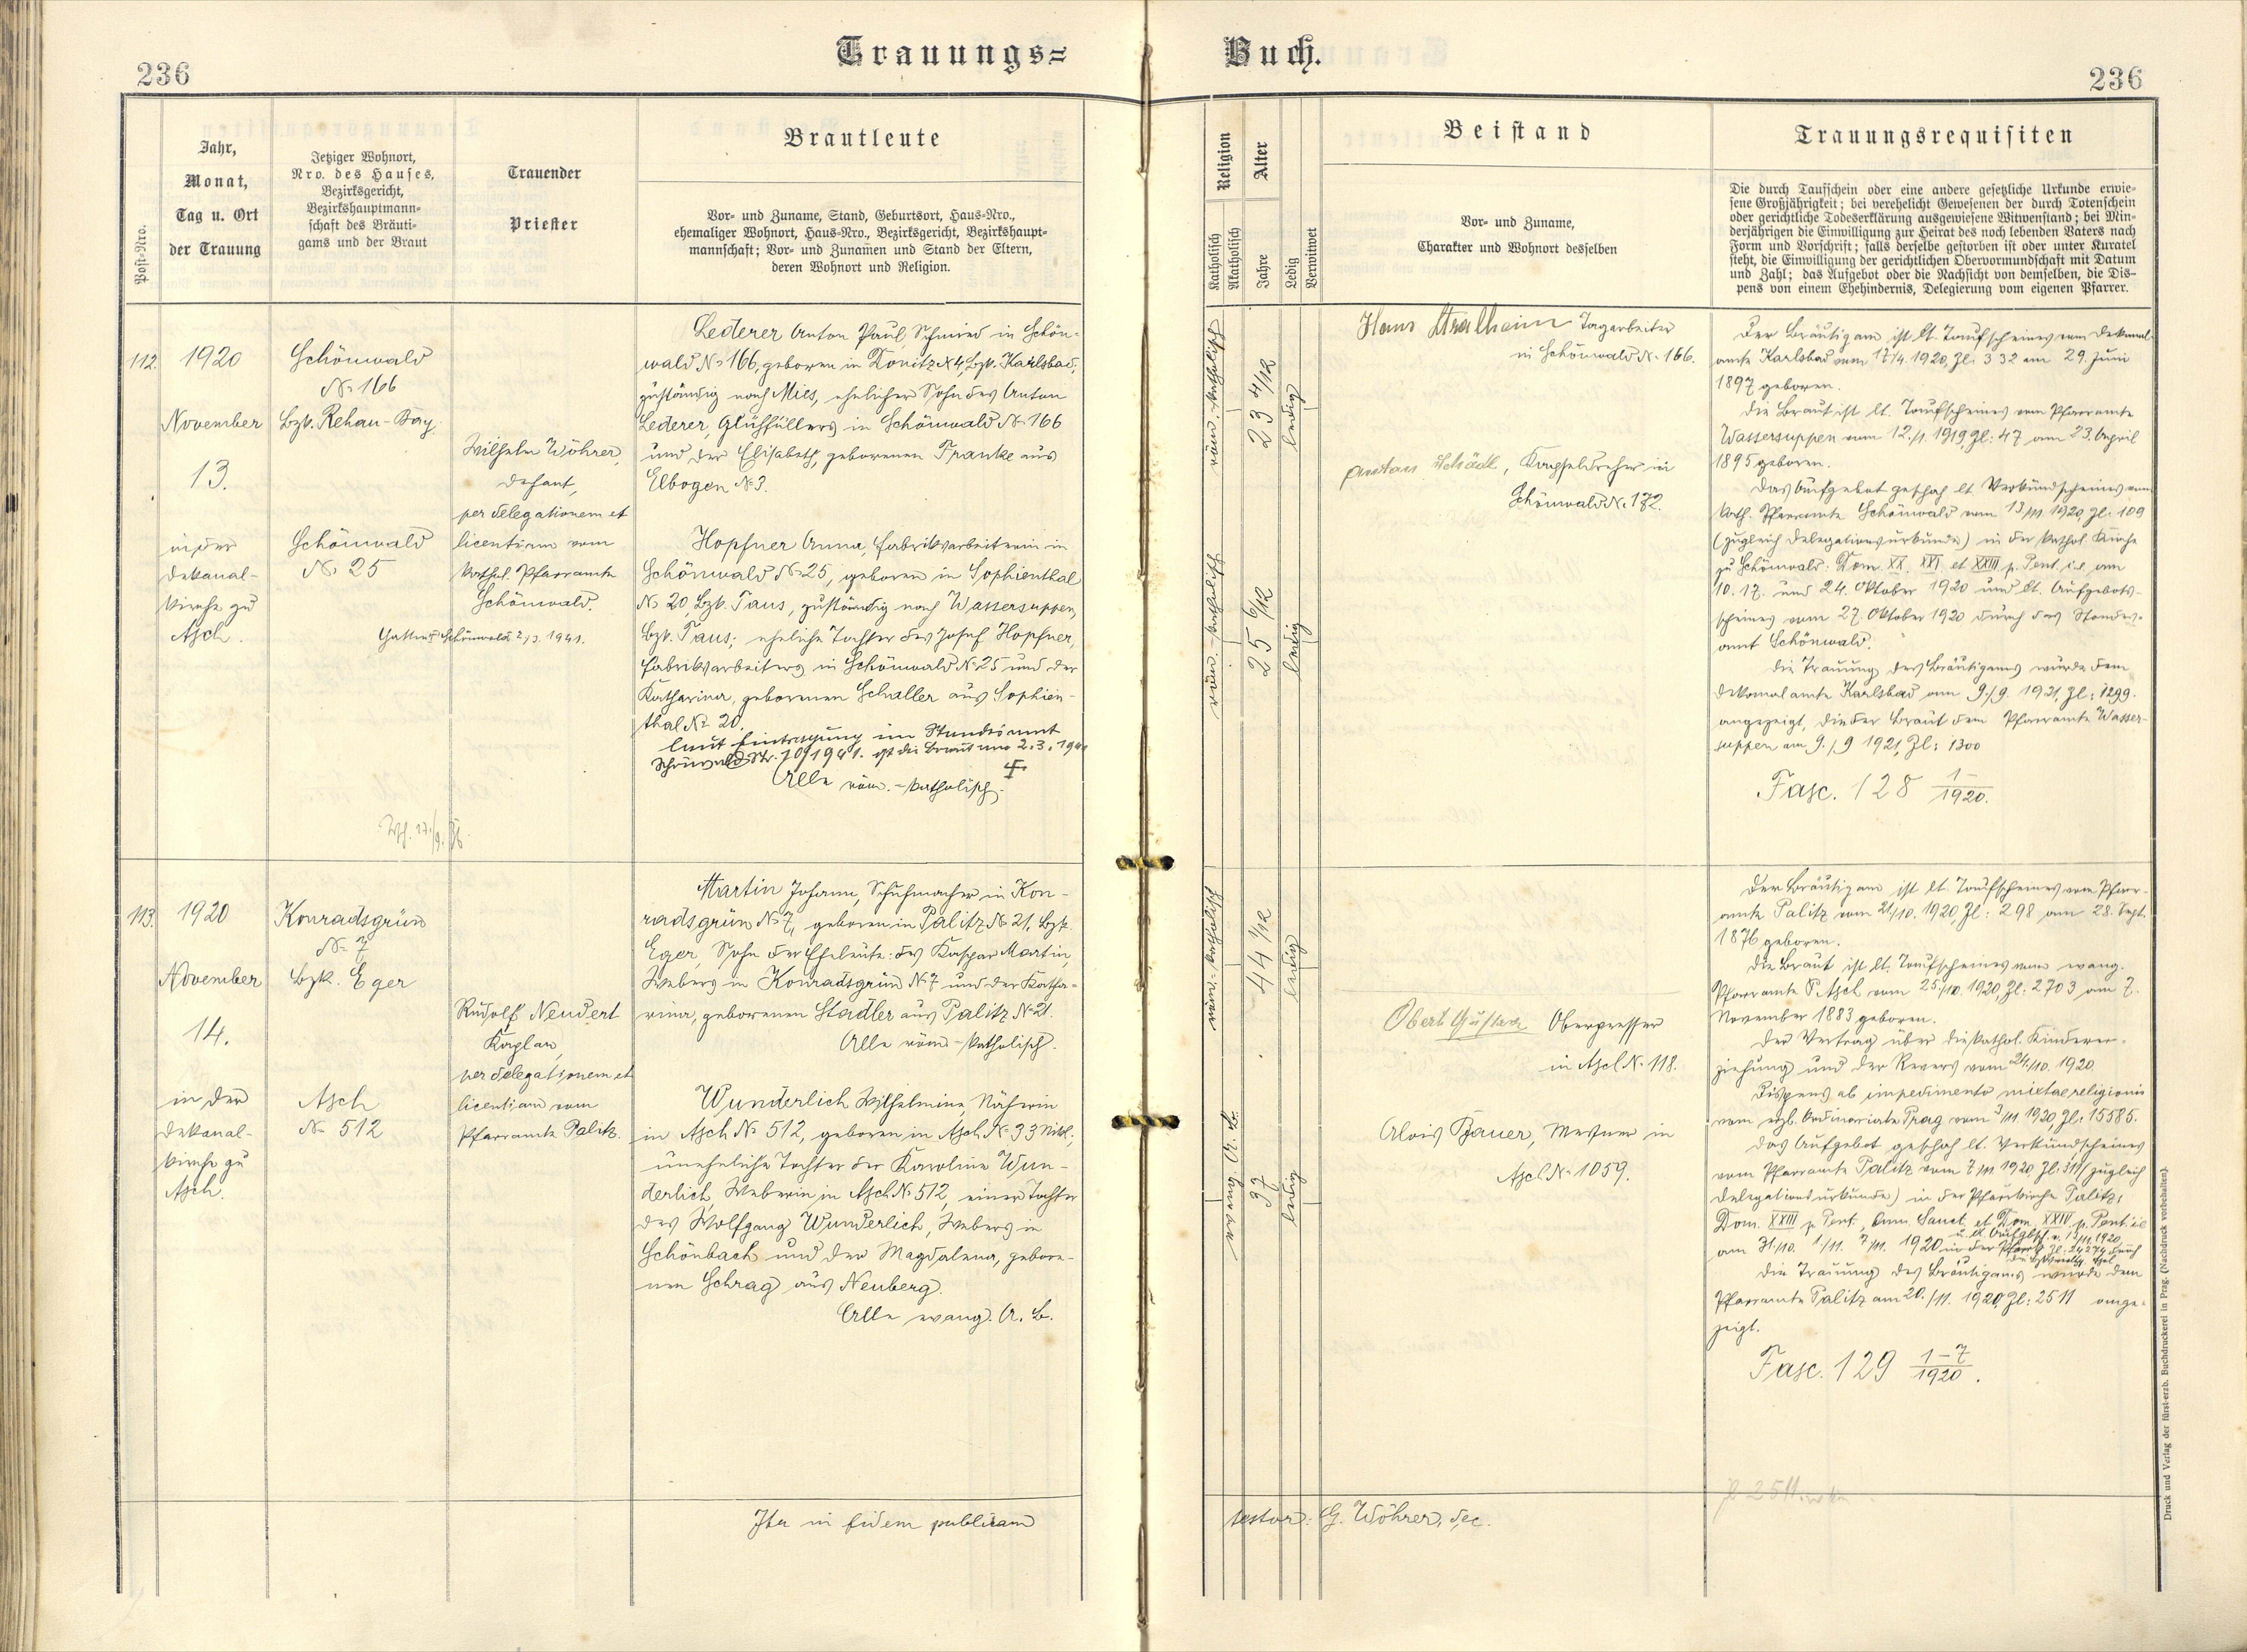 236
Trauungs=
Buch.
236
Post-Nro.
Jahr,
Monat,
Tag u. Ort
der Trauung
Jetziger Wohnort,
Nro. des Hauses,
Bezirksgericht,
Bezirkshauptmann=
schaft des Bräuti=
gams und der Braut
Trauender
Priester
Brautleute
Vor= und Zuname, Stand, Geburtsort, Haus=Nro.,
ehemaliger Wohnort, Haus=Nro., Bezirksgericht, Bezirkshaupt=
mannschaft; Vor= und Zunamen und Stand der Eltern,
deren Wohnort und Religion.
Religion
Katholisch
Akatholisch
Alter
Jahre
Ledig
Verwitwet
Beistand
Vor= und Zuname,
Charakter und Wohnort desselben
Trauungsrequisiten
Die durch Taufschein oder eine andere gesetzliche Urkunde erwie=
sene Großjährigkeit; bei verehelicht Gewesenen der durch Totenschein
oder gerichtliche Todeserklärung ausgewiesene Witwenstand; bei Min=
derjährigen die Einwilligung zur Heirat des noch lebenden Vaters nach
Form und Vorschrift; falls derselbe gestorben ist oder unter Kuratel
steht, die Einwilligung der gerichtlichen Obervormundschaft mit Datum
und Zahl; das Aufgebot oder die Nachsicht von demselben, die Dis=
pens von einem Ehehindernis, Delegierung vom eigenen Pfarrer.
112.
1920
November
13.
in der
Dekanal-
kirche zu
Asch.
Schönwald
No 166
Bzk. Rehau-Bay.
Schönwald
No 25
Wilhelm Wöhrer,
Dechant,
per delegationem et
licentiam vom
kathol. Pfarramte
Schönwald.
Schönwald 2/3. 1941.
Lederer Anton Paul, Schmied in Schön-
wald No 166, geboren in Donitz No 4, Bzk. Karlsbad,
zuständig nach Mies, ehelicher Sohn des Anton
Lederer, Glühfüllers in Schönwald No 166
und der Elisabeth, geborenen Franke aus
Elbogen No 3.
Hopfner Anna, Fabriksarbeiterin in
Schönwald No 25, geboren in Sophienthal
No 20, Bzk. Taus, zuständig nach Wassersuppen,
Bzk. Taus; eheliche Tochter des Josef Hopfner,
Fabriksarbeiters in Schönwald No 25 und der
Katharina, geborenen Schaller aus Sophien-
thal No 20.
laut Eintragung im Standesamt
Schönwald Nr. 10/1941. ist die Braut am 2.3.1941
Alle röm.-katholisch.
röm.-katholisch
23 4/12
ledig
röm.-katholisch
25 6/12
ledig
Hans Tagarbeiter
in Schönwald No 166.
Anton Schödl, Kapseldreher in
Schönwald No 172.
Der Bräutigam ist lt. Taufscheines vom Dekanal-
amte Karlsbad vom 17/4. 1920, Zl. 332 am 29. Juni
1897 geboren.
Die Braut ist lt. Taufscheines vom Pfarramte
Wassersuppen vom 12./1. 1919, Zl: 47 am 23. April
1895 geboren.
Das Aufgebot geschah lt. Verkündscheines vom
kath. Pfarramte Schönwald vom 13/11 1920, Zl: 109
(zugleich Delegationsurkunde) in der kathol. Kirche
zu Schönwald: Dom. XX. XXI. et XXII. p. Pent. i.e. am
10. 17. und 24. Oktober 1920 und lt. Aufgebots-
scheines vom 27. Oktober 1920 durch das Standes-
amt Schönwald.
Die Trauung des Bräutigams wurde dem
Dekanalamte Karlsbad am 9./9. 1921, Zl: 1299.
angezeigt, die der Braut dem Pfarramte Wasser-
suppen am 9./9 1921, Zl: 1300
Fasc. 128 1-/1920.
113.
1920
November
14.
in der
Dekanal-
kirche zu
Asch.
Konradsgrün
No 7
Bzk. Eger
Asch
No 512
Rudolf Neudert
Kaplan,
per delegationem et
licentiam vom
Pfarramte Palitz.
Martin Johann, Schuhmacher in Kon-
radsgrün No 7, geboren in Palitz No 21, Bzk.
Eger, Sohn der Eheleute: des Kaspar Martin,
Webers in Konradsgrün No 7 und der Katha-
rina, geborenen Stadler aus Palitz No 21.
Alle röm-katholisch.
Wunderlich Wilhelmine, Näherin
in Asch No 512, geboren in Asch No 33 Nikol.,
uneheliche Tochter der Karoline Wun-
derlich, Weberin in Asch No 512, einer Tochter
des Wolfgang Wunderlich, Webers in
Schönbach und der Magdalena, gebore-
nen Schrag aus Neuberg.
Alle evang. A. B.
röm.-katholisch
44 1/12
ledig
evang. A. B.
37
ledig
Obert Gustav Oberpresser
in Asch No 118.
Alois Bauer, Mesner in
Asch No 1059.
Der Bräutigam ist lt. Taufscheines vom Pfarr-
amte Palitz vom 21/10. 1920, Zl: 298 am 28. Sept.
1876 geboren.
Die Braut ist lt. Taufscheines vom evang.
Pfarramte Asch vom 25./10. 1920, Zl: 2703 am 7.
November 1883 geboren.
Der Vertrag über die kathol. Kinderer-
ziehung und der Revers vom 24/10. 1920.
Dispens ab impedimento mixtae religionis
vom erzb. Ordinariate Prag vom 3/11 1920, Zl: 15585.
Das Aufgebot geschah lt. Verkündscheines
vom Pfarramte Palitz vom 7/11 1920, Zl: 311 (zugleich
Delegationsurkunde) in der Pfarrkirche Palitz:
Dom. XXIII p. Pent., Omn. Sanct. et Dom. XXIV. p. Pent. i.e
am 31./10. 1/11. 7/11. 1920
Die Trauung des Bräutigams wurde dem
Pfarramte Palitz am 20./11. 1920, Zl: 2511 ange-
zeigt.
Fasc. 129 1-7/1920.
Ita in fidem publicam
testor: G. Wöhrer, Dec.
Druck und Verlag der fürst-erzb. Buchdruckerei in Prag. (Nachdruck vorbehalten).